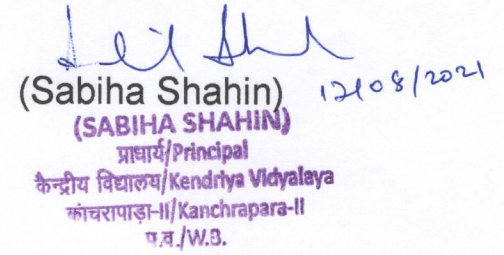 (Sabiha Shahin) 17/08/2021
(SABIHA SHAHIN)
प्राचार्य/Principal
केन्द्रीय विद्यालय/Kendriya Vidyalaya
कांचरापाड़ा-II/Kanchrapara-II
प.व./W.B.